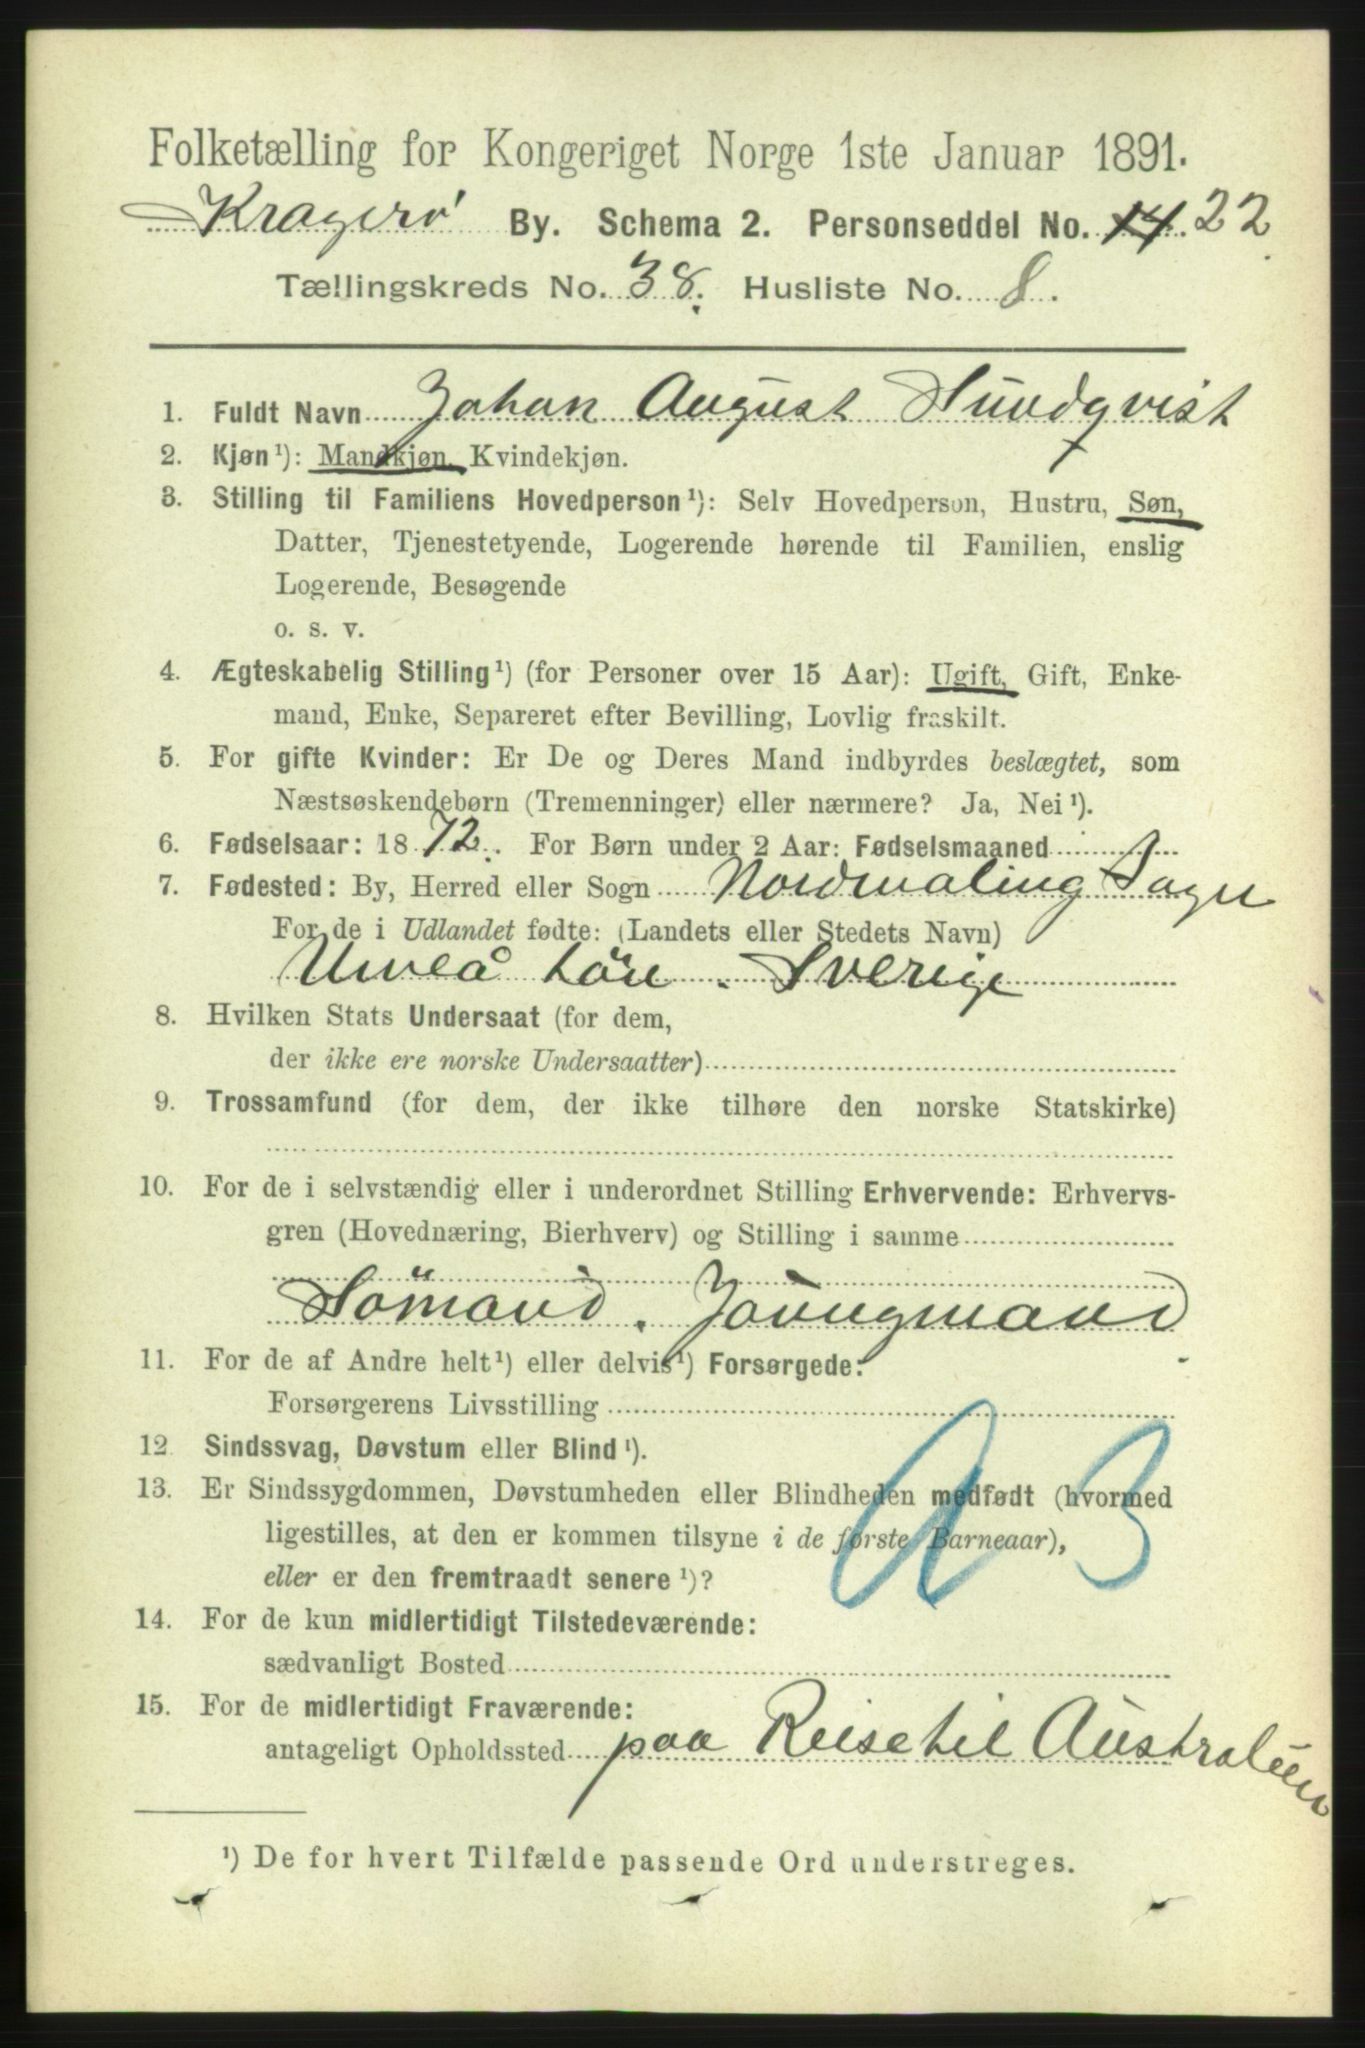 Folketælling for Kongeriget Norge 1ste Januar 1891.
Kragerø By. Schema 2. Personseddel No. 14 22
Tællingskreds No. 38. Husliste No. 8.
1. Fuldt Navn Johan August Sundqvist
2. Kjøn¹): Mandkjøn, Kvindekjøn.
3. Stilling til Familiens Hovedperson¹): Selv Hovedperson, Hustru, Søn,
Datter, Tjenestetyende, Logerende hørende til Familien, enslig
Logerende, Besøgende
o. s. v.
4. Ægteskabelig Stilling¹) (for Personer over 15 Aar): Ugift, Gift, Enke-
mand, Enke, Separeret efter Bevilling, Lovlig fraskilt.
5. For gifte Kvinder: Er De og Deres Mand indbyrdes beslægtet, som
Næstsøskendebørn (Tremenninger) eller nærmere? Ja, Nei¹).
6. Fødselsaar: 1872. For Børn under 2 Aar: Fødselsmaaned
7. Fødested: By, Herred eller Sogn Nordmaling Sogn
For de i Udlandet fødte: (Landets eller Stedets Navn)
Umeå Län. Sverige
8. Hvilken Stats Undersaat (for dem,
der ikke ere norske Undersaatter)
9. Trossamfund (for dem, der ikke tilhøre den norske Statskirke)
10. For de i selvstændig eller i underordnet Stilling Erhvervende: Erhvervs-
gren (Hovednæring, Bierhverv) og Stilling i samme
Sömand. Joungmand
11. For de af Andre helt¹) eller delvis¹) Forsørgede:
Forsørgerens Livsstilling
12 Sindssvag, Døvstum eller Blind¹).
13. Er Sindssygdommen, Døvstumheden eller Blindheden medfødt (hvormed
ligestilles, at den er kommen tilsyne i de første Barneaar),
eller er den fremtraadt senere¹)?
14. For de kun midlertidigt Tilstedeværende:
sædvanligt Bosted
15. For de midlertidigt Fraværende:
antageligt Opholdssted paa Reise til Australien
¹) De for hvert Tilfælde passende Ord understreges.